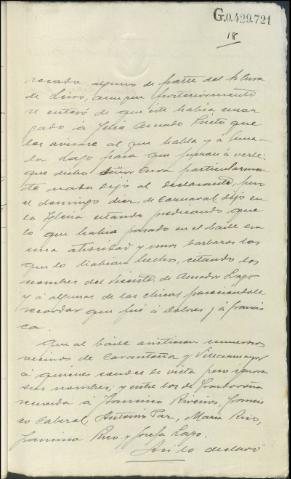 G.0.429.721
18
recado alguno de parte del Sr Cura
de           , aunque posteriormente
se enteró de que este había encar
gado a Jelia Amado Prieto que
les avisase al que habla y á
Lago para que fueran á verle;
que dicho Señor Cura particularmen
te nada dijo al declarante, pero
el domingo dia de carnaval dijo en
la Iglesia estando predicando que
lo que habia pasado en el baile era
una atrocidad y unos barbaros los
que lo habian hecho, citando los
nombres del              de Amador Lago
y á algunas de las chicas pareciendole
recordar que fué á Dolores y á Francis
ca.
Que al baile asistieron numerosos
vecinos de Carantoña y Villamayor
á quienes conoce de vista pero ignora
sus nombres, y entre los de
recuerda á Francisco Riveiro, Francis
co Caberal, Antonio Par, Maria Rivo,
Francisca Rivo y Josefa Lago.
Así lo declaró